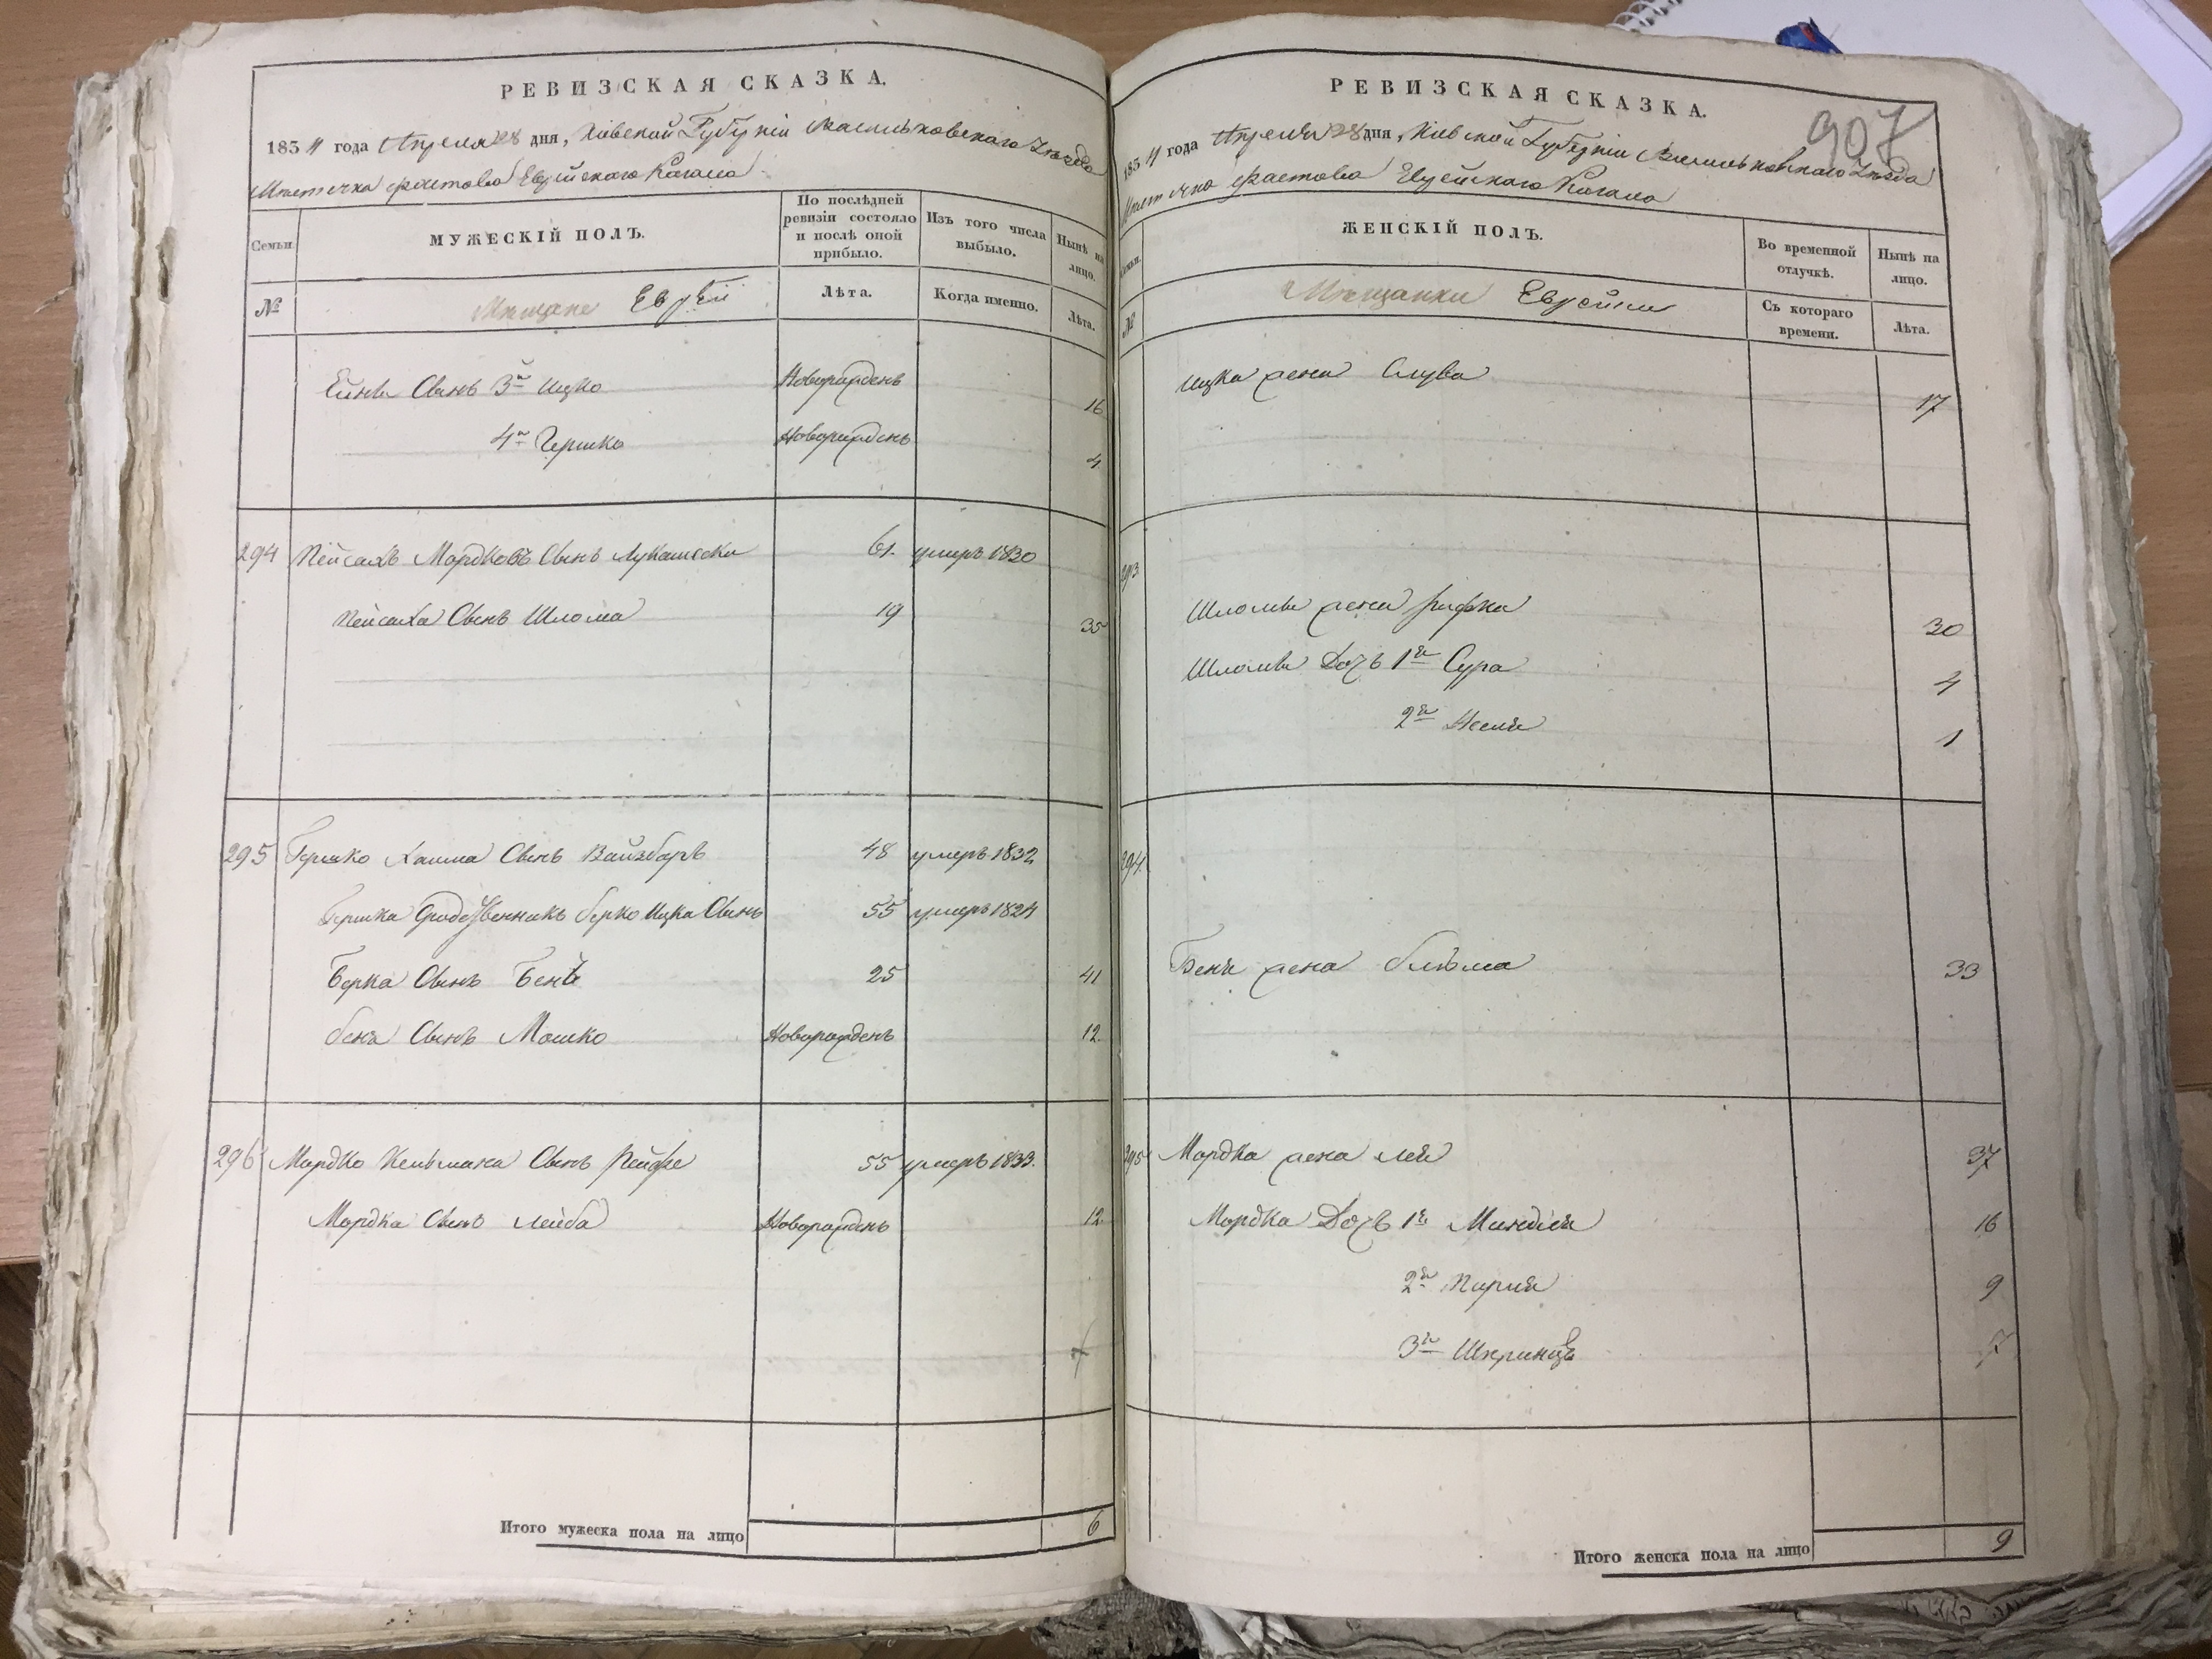 РЕВИЗСКАЯ СКАЗКА.
1834 года Апреля 28 дня, Кіевской Губерніи Васильковскаго Уѣзда
Мѣстечка Фастова Еврейскаго Кагала
Семьи.
МУЖЕСКІЙ ПОЛЪ.
По послѣдней ревизіи состояло и послѣ оной прибыло.
Изъ того числа выбыло.
Нынѣ на лицо.
№
Мѣщане Евреи
Лѣта.
Когда именно.
Лѣта.
Сынъ 3й Ицко Новорожденъ 16
4й Гершко Новорожденъ 4
294 Пейсахъ Мордковъ Сынъ 61. умеръ 1830
Пейсаха Сынъ Шлома 19 35
295 Гершко Хаима Сынъ Вайзбаръ 48 умеръ 1832
Гершка Родственникъ Берко Ицка Сынъ 55 умеръ 1824
Берка Сынъ 25 41
Сынъ Мошко Новорожденъ 12.
296 Мордко Кельмана Сынъ 55 умеръ 1833.
Мордка Сынъ Лейба Новорожденъ 12.
Итого мужеска пола на лицо 6
РЕВИЗСКАЯ СКАЗКА.
907
1834 года Апреля 28 дня, Кіевской Губерніи Васильковскаго Уѣзда
Мѣстечка Фастова Еврейскаго Кагала
Семьи.
ЖЕНСКІЙ ПОЛЪ.
Во временной отлучкѣ.
Нынѣ на лицо.
№
Мѣщанки Еврейки
Съ котораго времени.
Лѣта.
Ицка жена Слува 17
293
Шломы жена Рифка 30
Шломы Дочь 1я Сура 4
2я Несия 1
294.
жена 33
295 Мордка жена Лея 37
Мордка Дочь 1я Миндля 16
2я 9
3я 7
Итого женска пола на лицо 9